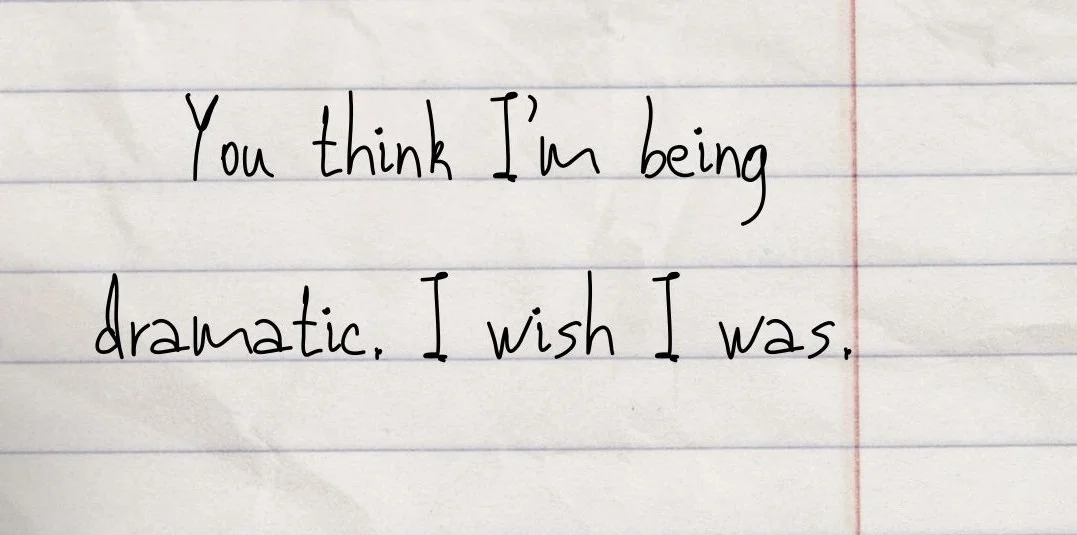 You think I'm being
dramatic. I wish I was.